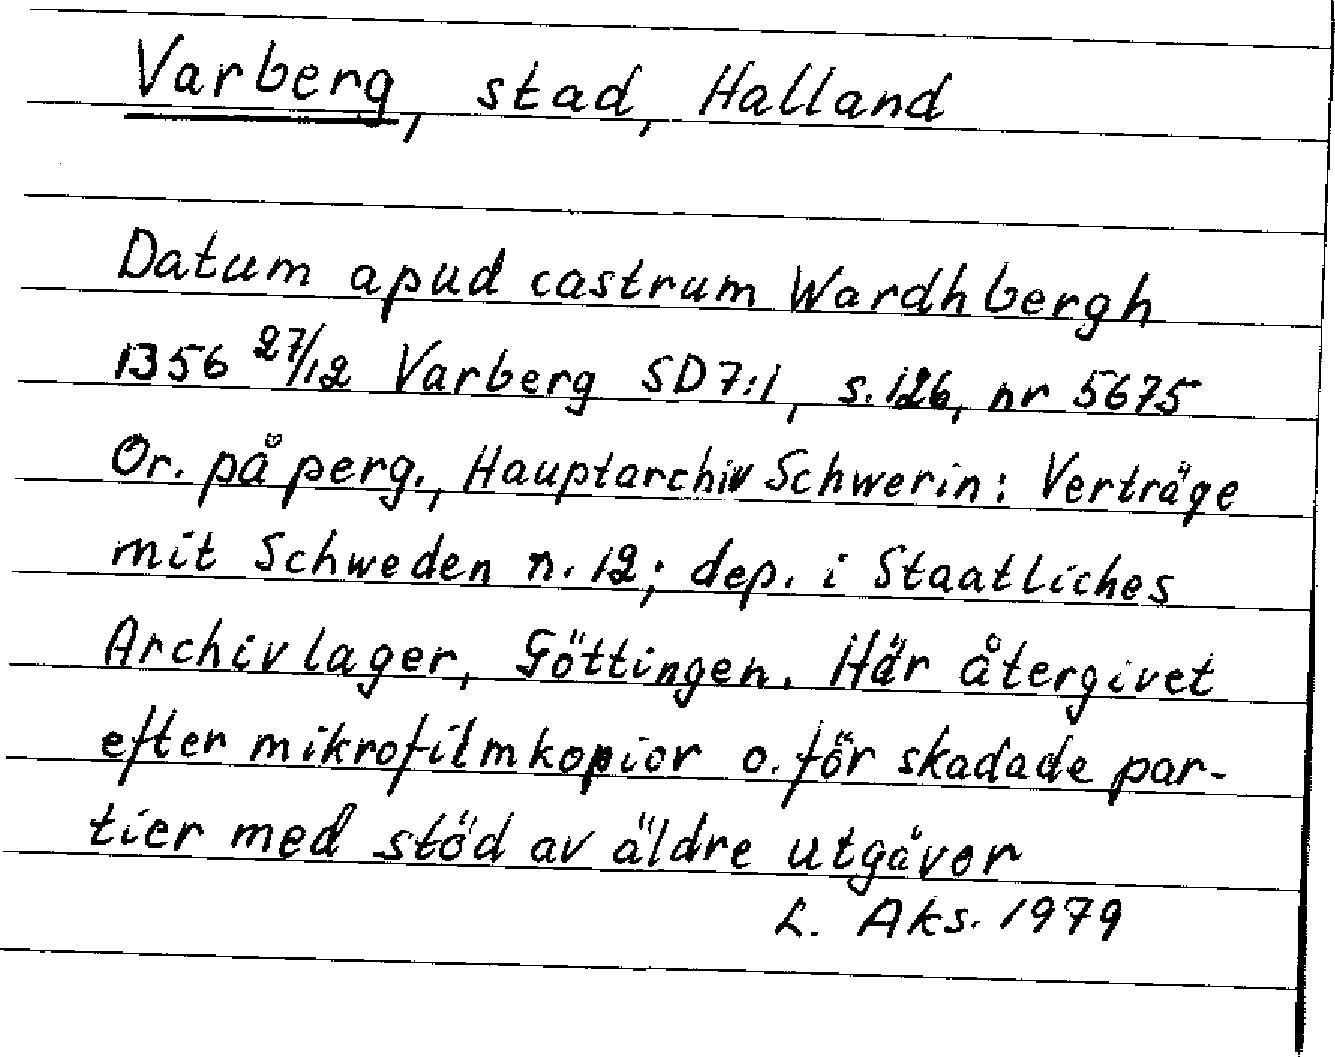 Varberg, stad, Halland
Datum apud castrum Wardhbergh
1356 27/12 Varberg SD 7:1, s. 126, nr 5675
Or. på perg., Hauptarchiv Schwerin: Verträge
mit Schweden n. 12; dep. i Staatliches
Archivlager, Göttingen. Här återgivet
efter mikrofilmkopior o. för skadade par-
tier med stöd av äldre utgåvor
L. Aks. 1979